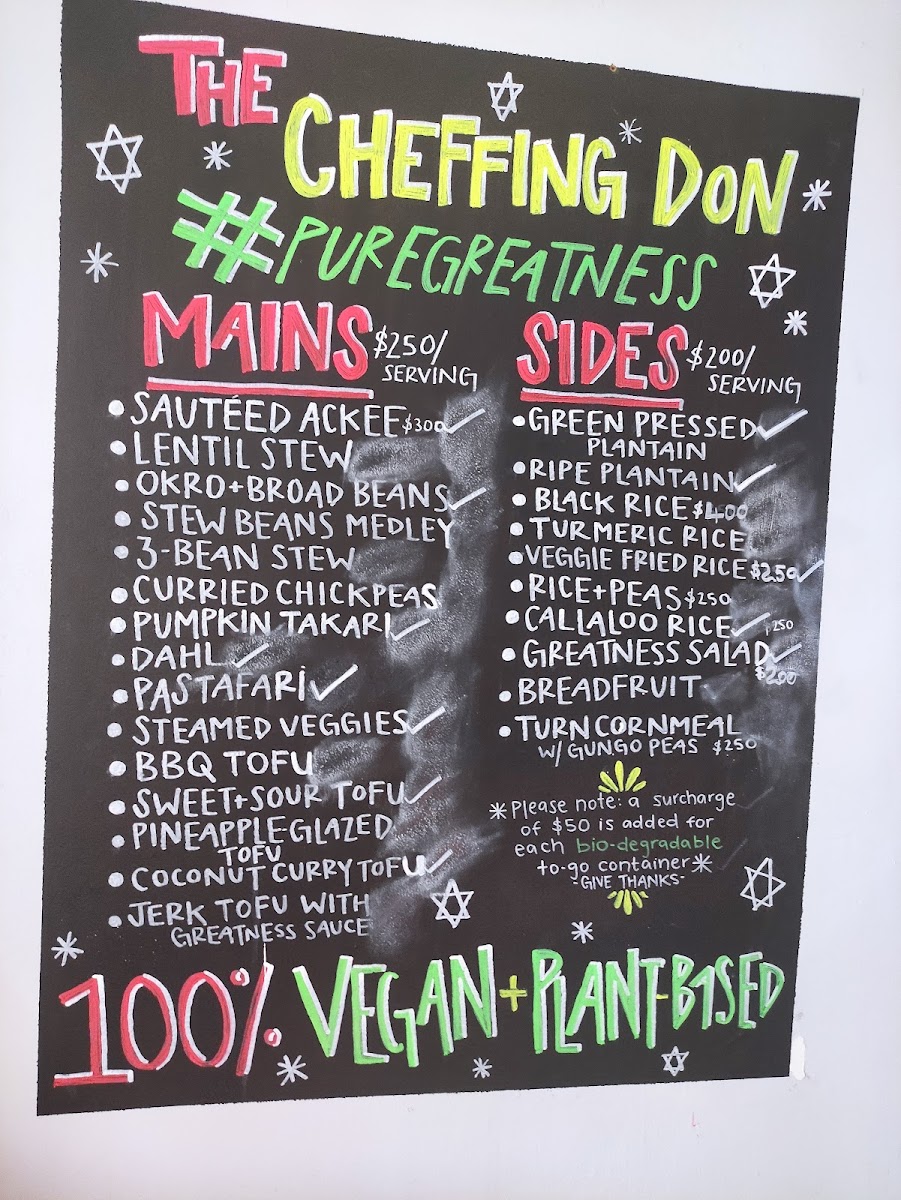 THE
CHEFFING DON
#PUREGREATNESS
MAINS $250/
SERVING
• SAUTÉED ACKEE $300 ✓
• LENTIL STEW
• OKRO+BROAD BEANS ✓
• STEW BEANS MEDLEY
• 3-BEAN STEW
• CURRIED CHICKPEAS
• PUMPKIN TAKARI ✓
• DAHL ✓
• PASTAFARI ✓
• STEAMED VEGGIES ✓
• BBQ TOFU
• SWEET+SOUR TOFU ✓
• PINEAPPLE GLAZED
TOFU
• COCONUT CURRY TOFU ✓
• JERK TOFU WITH
GREATNESS SAUCE
SIDES $200/
SERVING
• GREEN PRESSED ✓
PLANTAIN
• RIPE PLANTAIN ✓
• BLACK RICE $400
• TURMERIC RICE
• VEGGIE FRIED RICE $250 ✓
• RICE+PEAS $250
• CALLALOO RICE ✓ 250
• GREATNESS SALAD ✓
$200
• BREADFRUIT
• TURN CORNMEAL
W/ GUNGO PEAS $250
*Please note: a surcharge
of $50 is added for
each bio-degradable
to-go container*
-GIVE THANKS-
100% VEGAN + PLANT-BASED